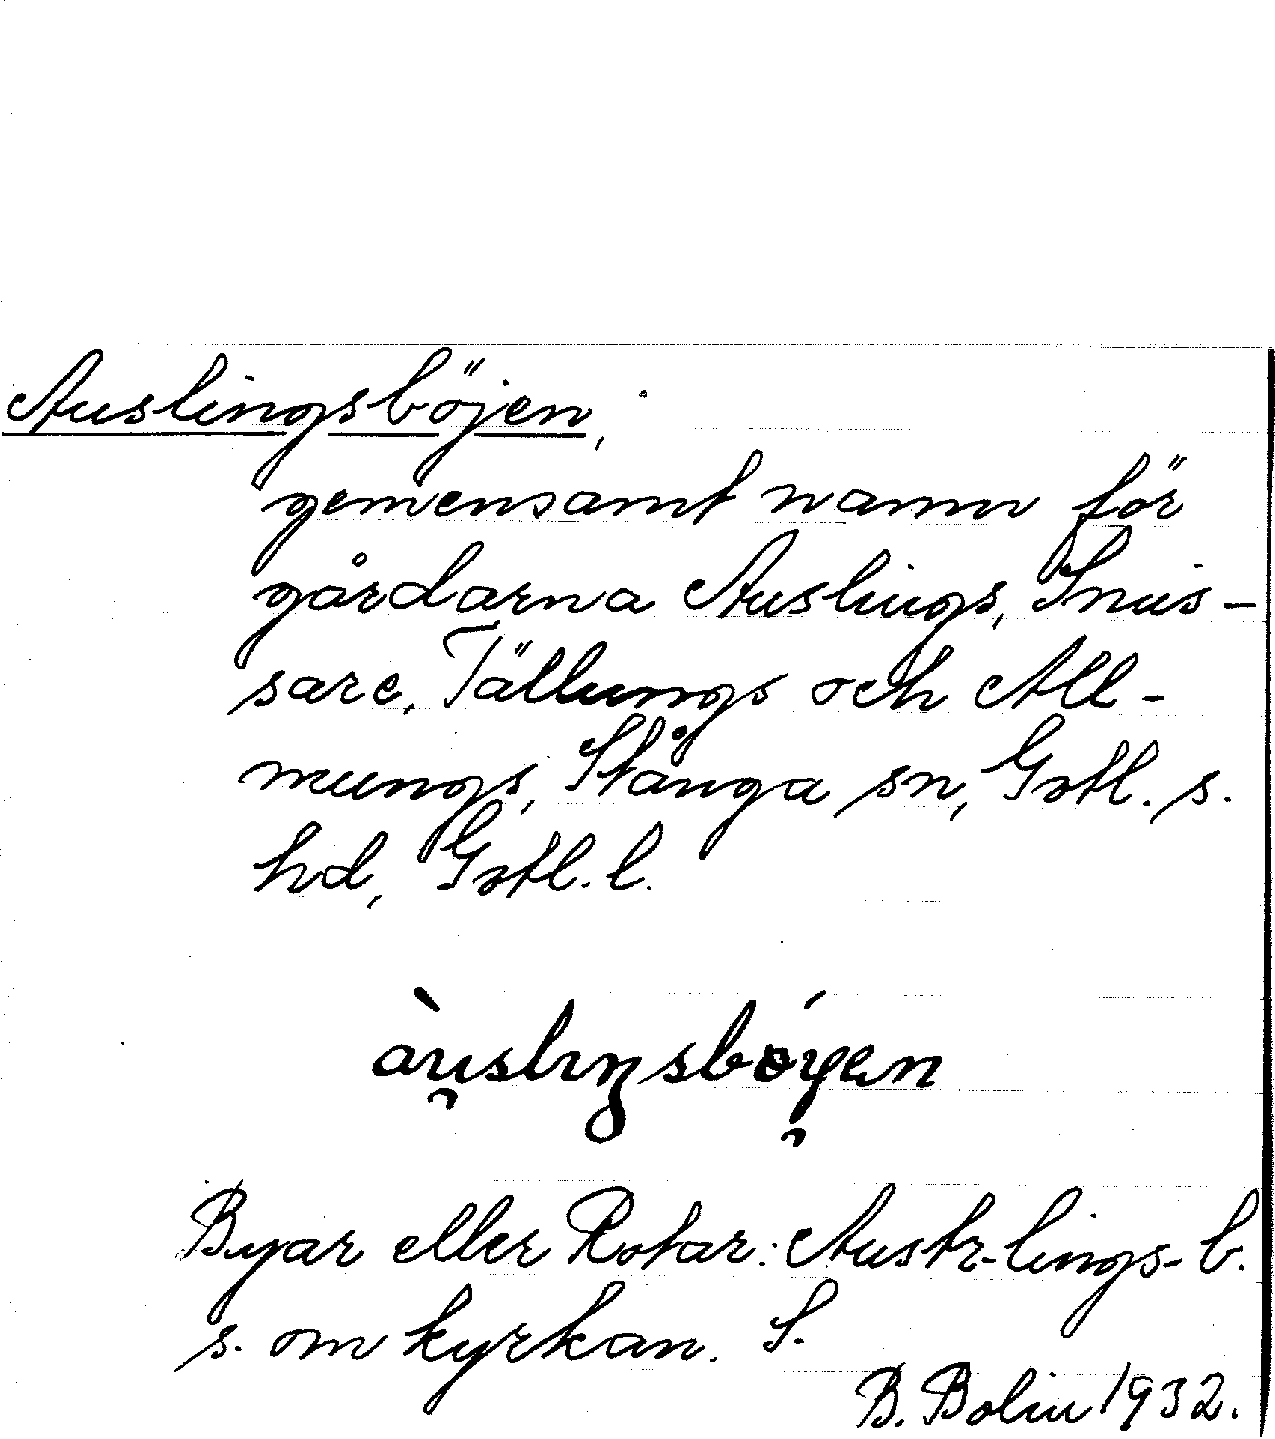 Auslingsböjen,
gemensamt namn för
gårdarna Auslings, Snus-
sare, Tällungs och All-
mungs, Stånga sn, Gotl. s.
hd, Gotl. l.
Byar eller Rotar: Austr-lings-b.
s. om kyrkan. S.
B. Bolin 1932.